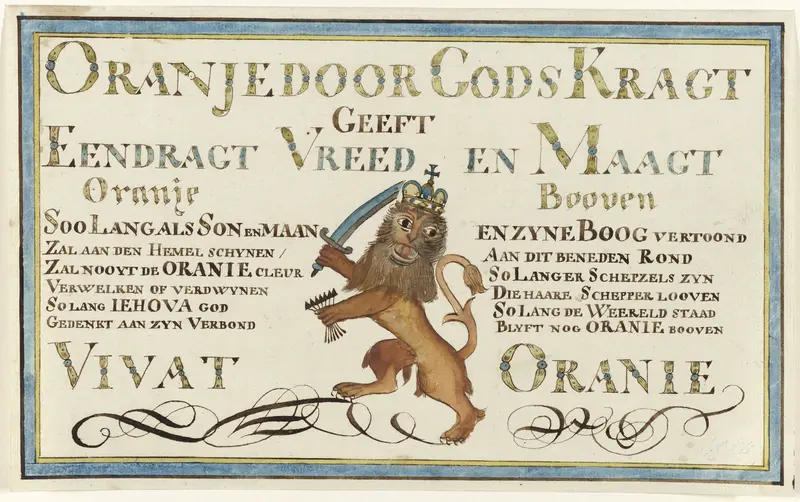 ORANJE DOOR GODS KRAGT
GEEFT
EENDRAGT VREED EN MAAGT
Oranje
Booven
SOO LANG ALS SON EN MAAN
ZAL AAN DEN HEMEL SCHYNEN /
ZAL NOOYT DE ORANIE CLEUR
VERWELKEN OF VERDWYNEN
SO LANG IEHOVA GOD
GEDENKT AAN ZYN VERBOND
EN ZYNE BOOG VERTOOND
AAN DIT BENEDEN ROND
SO LANGER SCHEPZELS ZYN
DIE HAARE SCHEPPER LOOVEN
SO LANG DE WEERELD STAAD
BLYFT NOG ORANIE BOOVEN
VIVAT ORANIE